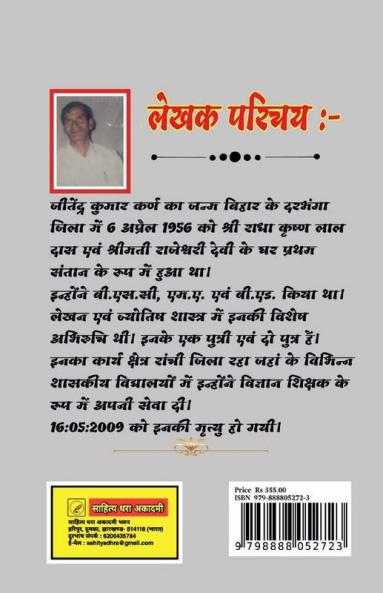 लेखक परिचय :-
जीतेंद्र कुमार कर्ण का जन्म बिहार के दरभंगा
जिला में 6 अप्रेल 1956 को श्री राधा कृष्ण लाल
दास एवं श्रीमती राजेश्वरी देवी के घर प्रथम
संतान के रूप में हुआ था।
इन्होंने बी.एस.सी, एम.ए. एवं बी.एड. किया था।
लेखन एवं ज्योतिष शास्त्र में इनकी विशेष
अभिरुचि थी। इनके एक पुत्री एवं दो पुत्र हैं।
इनका कार्य क्षेत्र रांची जिला रहा जहां के विभिन्न
शासकीय विद्यालयों में इन्होंने विज्ञान शिक्षक के
रूप में अपनी सेवा दी।
16:05:2009 को इनकी मृत्यु हो गयी।
साहित्य धरा अकादमी
साहित्य धरा अकादमी भवन
हरिपुर, दुमका, झारखण्ड- 814118 (भारत)
दुरभाष संपर्क : 6200435784
ई-मेल : sahityadhra@gmail.com
Price Rs 355.00
ISBN 979-888805272-3
9 798888 052723